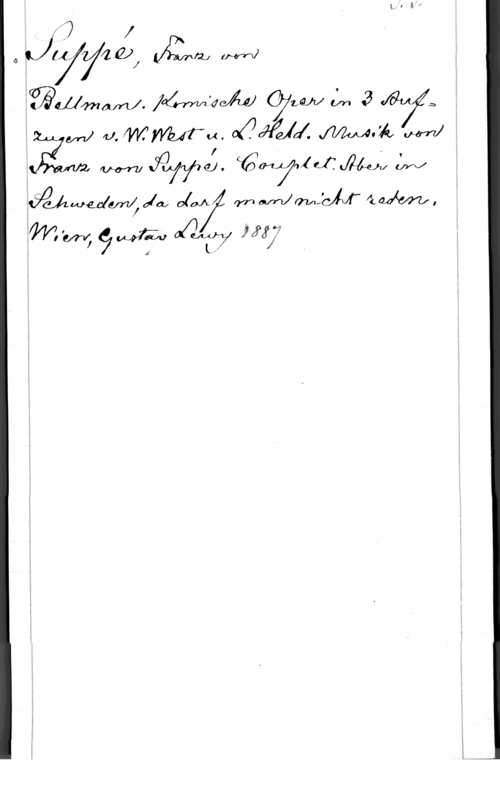 Suppé, Franz von
Bellman. Komische Oper in 3 Auf=
zugen v. W. West u. L. Held. Musik von
Franz von Suppé. Couplet. Aber in
Schweden, da darf man nicht reden.
Wien, Gustav Lewy 1887